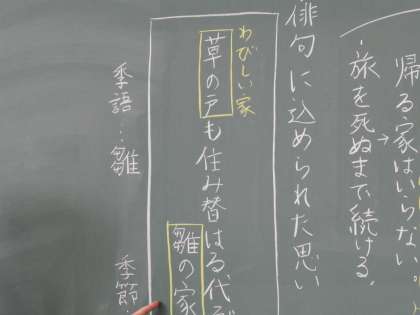 帰る家はいらない。
→旅を死ぬまで続ける、
俳句に込められた思い
わびしい家
草の戸も住み替はる代ぞ
雛の家
季語:雛
季節: